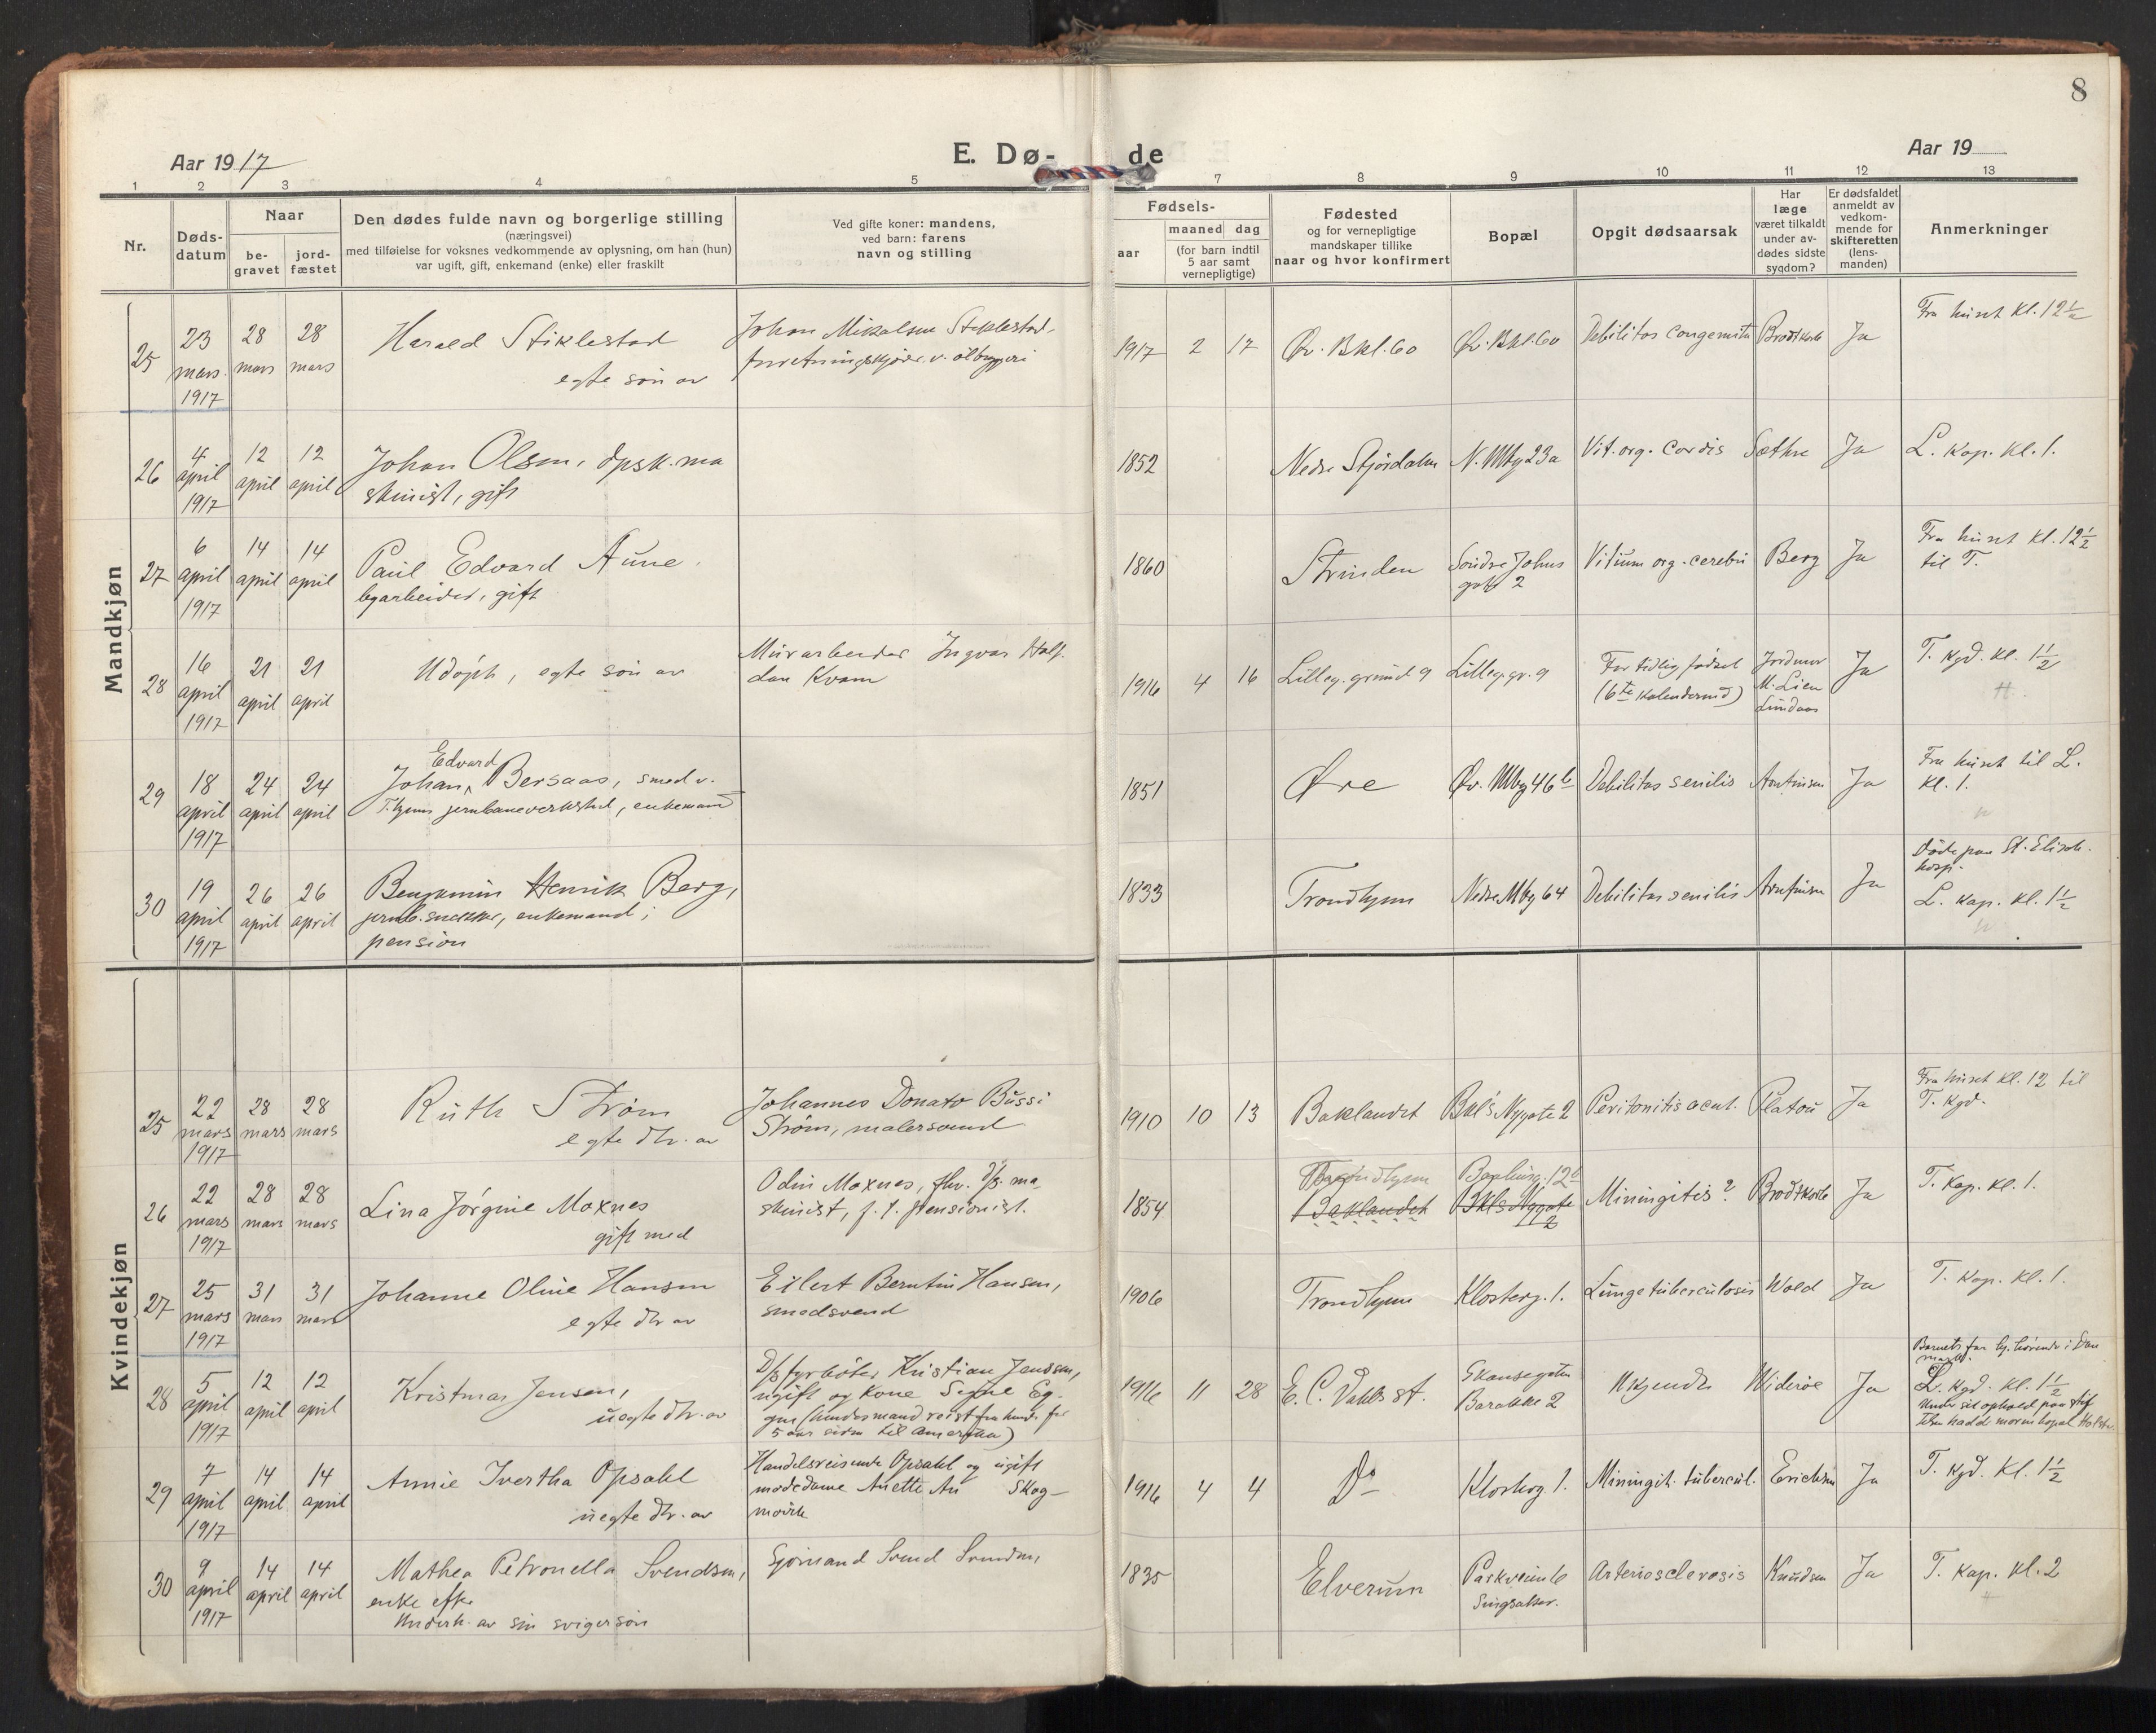 8
Aar 1917
E. Dø-
de
Aar 19
1 2 3 4 5 7 8 9 10 11 12 13
Nr.
Døds-
datum
Naar
be-
gravet
jord-
fæstet
Den dødes fulde navn og borgerlige stilling
(næringsvei)
med tilføielse for voksnes vedkommende av oplysning, om han (hun)
var ugift, gift, enkemand (enke) eller fraskilt
Ved gifte koner: mandens,
ved barn: farens
navn og stilling
Fødsels-
aar
maaned dag
(for barn indtil
5 aar samt
vernepligtige)
Fødested
og for vernepligtige
mandskaper tillike
naar og hvor konfirmert
Bopæl
Opgit dødsaarsak
Har
læge
været tilkaldt
under av-
dødes sidste
sygdom?
Er dødsfaldet
anmeldt av
vedkom-
mende for
skifteretten
(lens-
manden)
Anmerkninger
Mandkjøn
25
23
mars
1917
28
mars
28
mars
Harald Stiklestad
egte søn av
Johan Mikalsen Stiklestad,
forretningskjører v. ølbryggeri
1917 2 17
Øv. Bkl. 60
Øv. Bkl. 60
Debilitas congenita
Brodtkorb
Ja
Fra huset kl. 12 1/2
26
4
april
1917
12
april
12
april
Johan Olsen, dpsk. ma
skinist, gift
1852
Nedre Stjørdalen
N. Mbg 23a
Vit. org. cordis
Sæthre
Ja
L. kap. kl. 1.
27
6
april
1917
14
april
14
april
Paul Edvard Aune,
byarbeider, gift
1860
Strinden
Søndre Johns
gate 2
Vitium org. cerebri
Berg
Ja
Fra huset kl. 12 1/2
til T.
28
16
april
1917
21
april
21
april
Udøpt, egte søn av
Murarbeider Ingvar Half-
dan Kvam
1916 4 16
Lilleg. grund 9
Lilleg. gr. 9
For tidlig født
(6te kalendermd)
Jordmor
M. Lien
Lundaas
Ja
T. kgd. kl. 1 1/2
29
18
april
1917
24
april
24
april
Edvard
Johan Bersaas, smed v.
T.hjems jernbaneverksted, enkemand
1851
Øre
Øv. Mbg 46b
Debilitas senilis
Arntsen
Ja
Fra huset til L.
kl. 1.
30
19
april
1917
26
april
26
april
Benjamin Henrik Berg,
jernb. snekker, enkemand;
pension
1833
Trondhjem
Nedre Mbg 64
Debilitas senilis
Ja
Døde paa St. Elisab.
hosp.
L. kap. kl. 1 1/2
Kvindekjøn
25
22
mars
1917
28
mars
28
mars
Ruth Strøm
egte dtr. av
Johannes Donato Bussi
Strøm, malersvend
1910 10 13
Baklandet
Bkl's Nygate 2
Peritonitis acut.
Platou
Ja
Fra huset kl. 12 til
T. kgd.
26
22
mars
1917
28
mars
28
mars
Lina Jørgine Moxnes
gift med
Odin Moxnes, fhv. d/s. ma-
skinist, f. t. pensionist.
1854
Trondhjem
Baklandet
Bkls Nygate
2
Miningitis?
Brodtkorb
Ja
T. kap. kl. 1.
27
25
mars
1917
31
mars
31
mars
Johanne Oline Hansen
egte dtr av
Eilert Berntin Hansen,
smedsvend
1906
Trondhjem
Klosterg. 1.
Lungetuberculosis
Wold
Ja
T. kap. kl. 1.
28
5
april
1917
12
april
12
april
Kristmar Jensen,
uegte dtr. av
D/s fyrbøter Kristian Jensen,
ugift og kone Signe Eg-
gen (hendes mand reist fra hende for
5 aar siden til Amerika)
1916 11 28
E. C. Dahls st.
Skansegaten
Barakke 2
Ukjendt
Widerøe
Ja
Barnets far hj. hørende i Dan
mark.
L. kgd. kl. 1 1/2
Under sit ophold paa stif
telsen hadde moren bopæl
29
7
april
1917
14
april
14
april
Annie Ivertha Opsahl
uegte dtr. av
Handelsreisende Opsahl og ugift
modedame Anette An Skog-
mo
1916 4 4
Do
Klosterg. 1.
Miningit. tubercul.
Erichsen
Ja
T. kgd. kl. 1 1/2
30
9
april
1917
14
april
14
april
Mathea Petronella Svendsen,
enke efter
Underh. av sin svigersøn
Svend Svendsen,
1835
Elverum
Parkveien 6
Singsaker.
Arteriosclerosis
Knudsen
Ja
T. kap. kl. 2